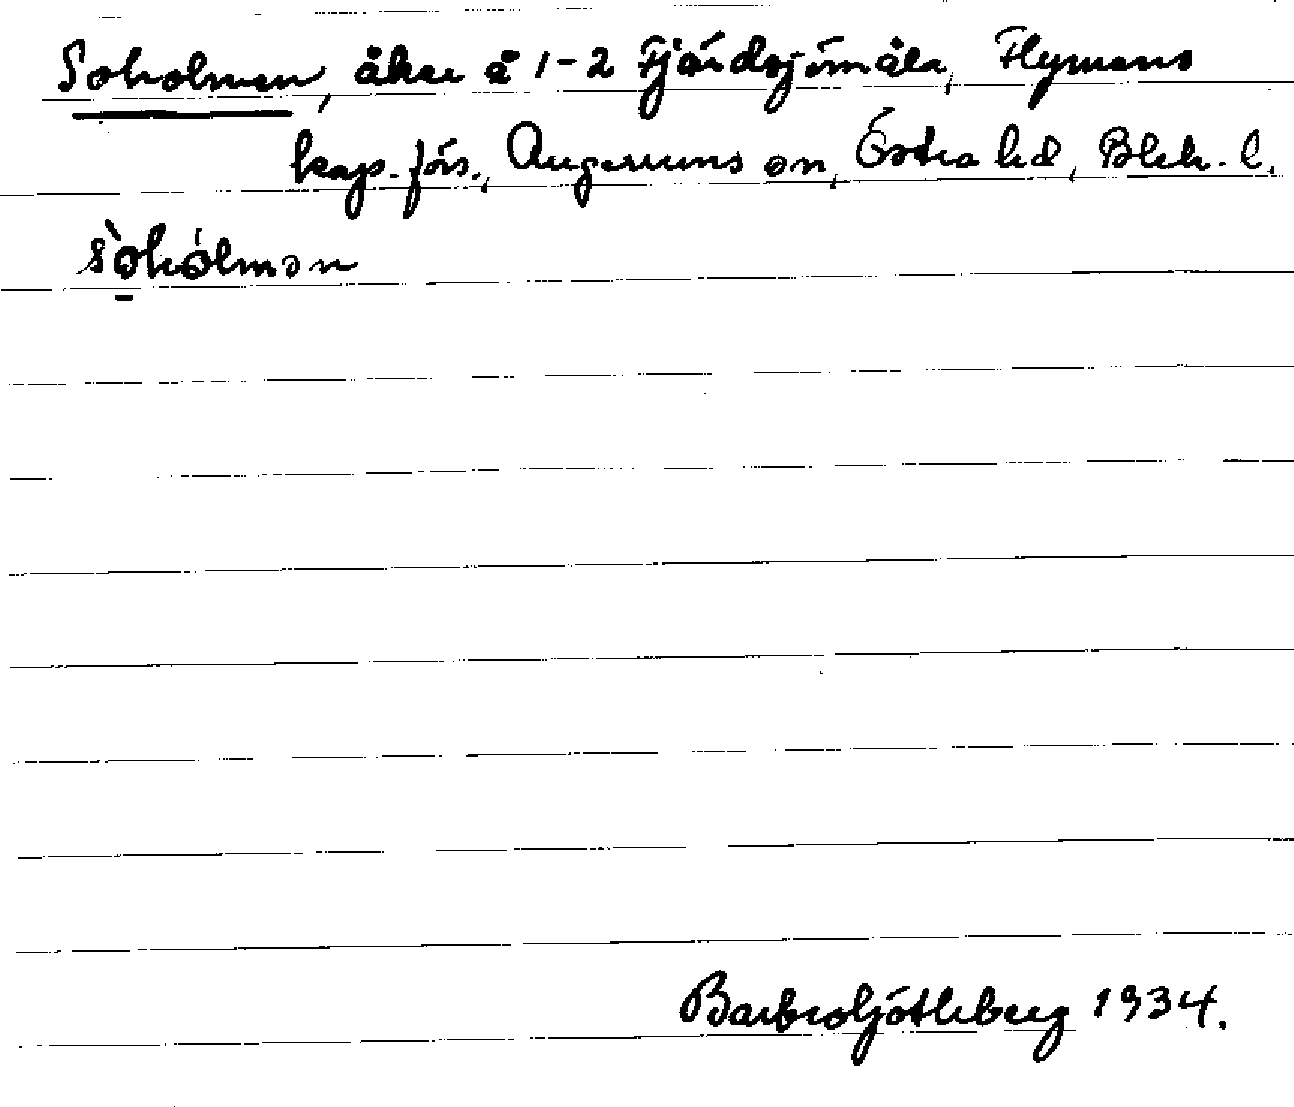 Soholmen, åker å 1-2 Fjärdsjömåla, Flymens
kap.-förs., Augerums sn, Östra hd, Blek. l.
sòhólmən
Barbro Ljötleberg 1934.